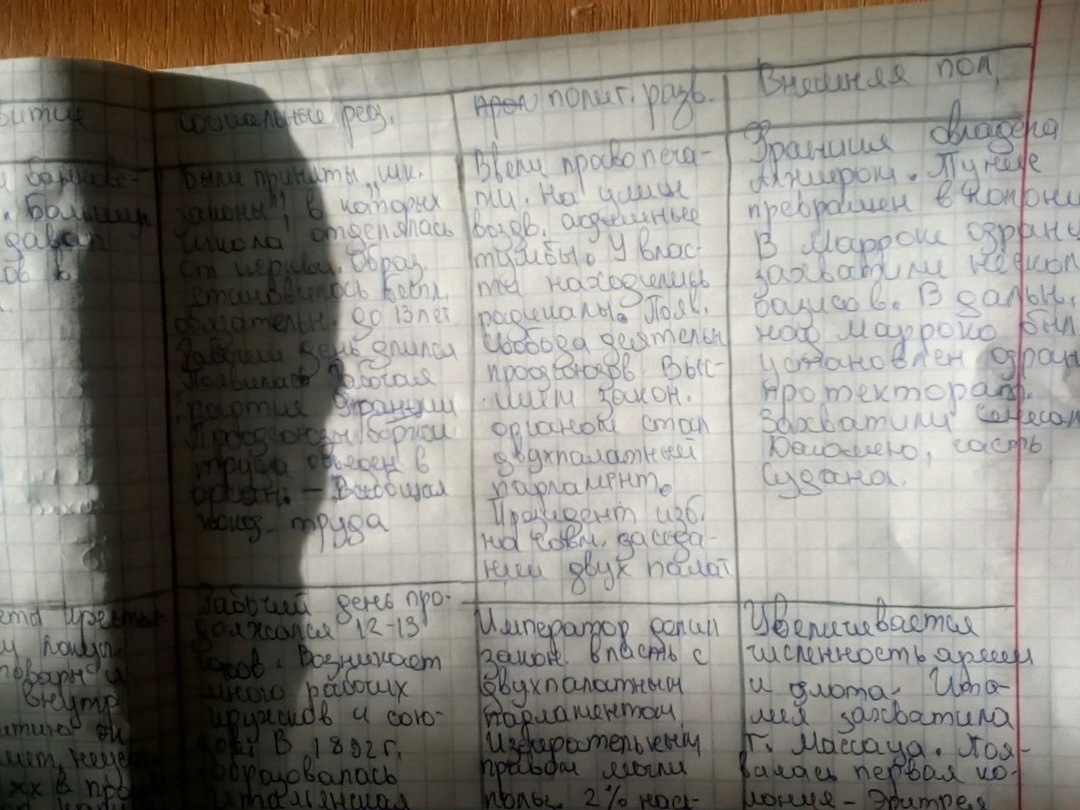 витие
социальные реф.
полит. разв.
Внешняя пол.
банковс-
. Больши
давал
ов в
Были приняты „шк.
законы", в которых
школа отделялась
от церкви. Образ.
становилось беспл.
обязательн. до 13 лет
Рабочий день длился
Появилась Рабочая
партия Франции
Профсоюзы Биржи
труда объеден в
орган. – Всеобщая
конф. труда
Ввели право печа-
ти. На улицах
возв. афишные
тумбы. У влас-
ти находились
радикалы. Появ.
свобода деятельн
профсоюзов. Выс-
шим закон.
органом стал
двухпалатный
парламент.
Президент изб.
на совм. заседа-
нии двух палат
Франция овладела
Алжиром. Тунис
превращен в колони
В Марроко франц
захватили нескол
оазисов. В дальн.
над Марроко был
установлен фран
протекторат.
Захватили Сенегал
Дагомею, часть
Судана.
товарн и
внутр
Рабочий день про-
должался 12-13
часов. Возникает
много рабочих
кружков и сою-
зов. В 1892 г.
образовалась
Итальянская
Император делил
закон. власть с
двухпалатным
парламентом
Избирательным
правом могли
польз. 2% нас-
Увеличивается
численность армии
и флота. Ита-
лия захватила
г. Массауа. Поя-
вилась первая ко-
лония – Эритрея